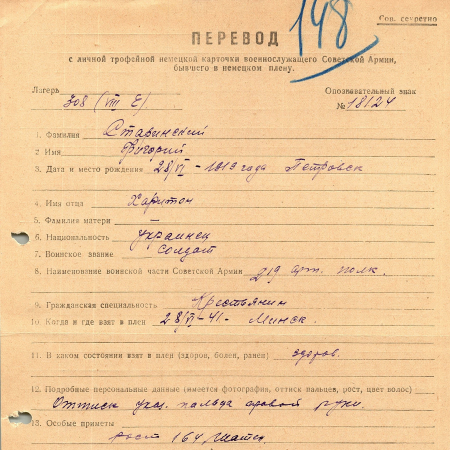 Сов. секретно
148
ПЕРЕВОД
с личной трофейной немецкой карточки военнослужащего Советской Армии,
бывшего в немецком плену.
Лагерь 308 (VIII E) Опознавательный знак
№ 18124
1. Фамилия Ставинский
2 Имя Григорий
3. Дата и место рождения 28/VI - 1919 года Петровск
4. Имя отца Харитон
5. Фамилия матери —
6. Национальность украинец
7. Воинское звание солдат
8. Наименование воинской части Советской Армии 219 арт. полк.
9. Гражданская специальность Крестьянин
10. Когда и где взят в плен 28/VI-41.- Минск.
11. В каком состоянии взят в плен (здоров, болен, ранен) здоров.
12. Подробные персональные данные (имеется фотография, оттиск пальцев, рост, цвет волос)
Оттиск указ. пальца правой руки
13. Особые приметы
Рост 164